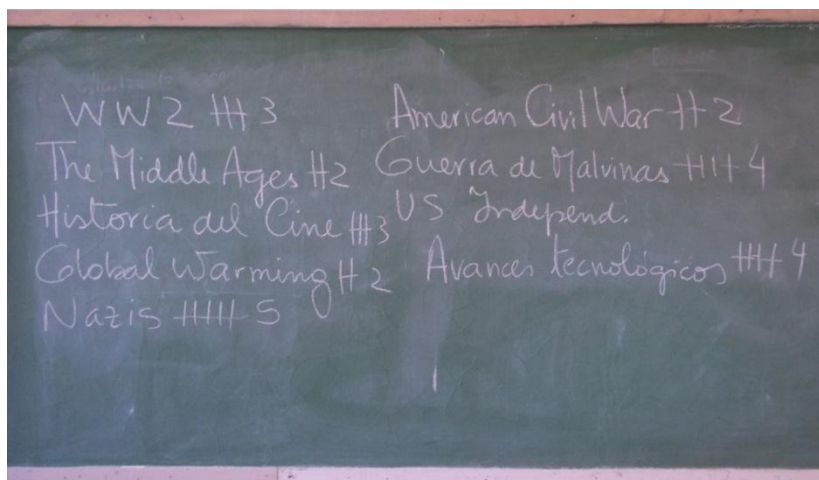 WW2 3
The Middle Ages 2
Historia del Cine 3
Global Warming 2
Nazis 5
American Civil War 2
Guerra de Malvinas 4
US Independ.
Avances tecnológicos 4